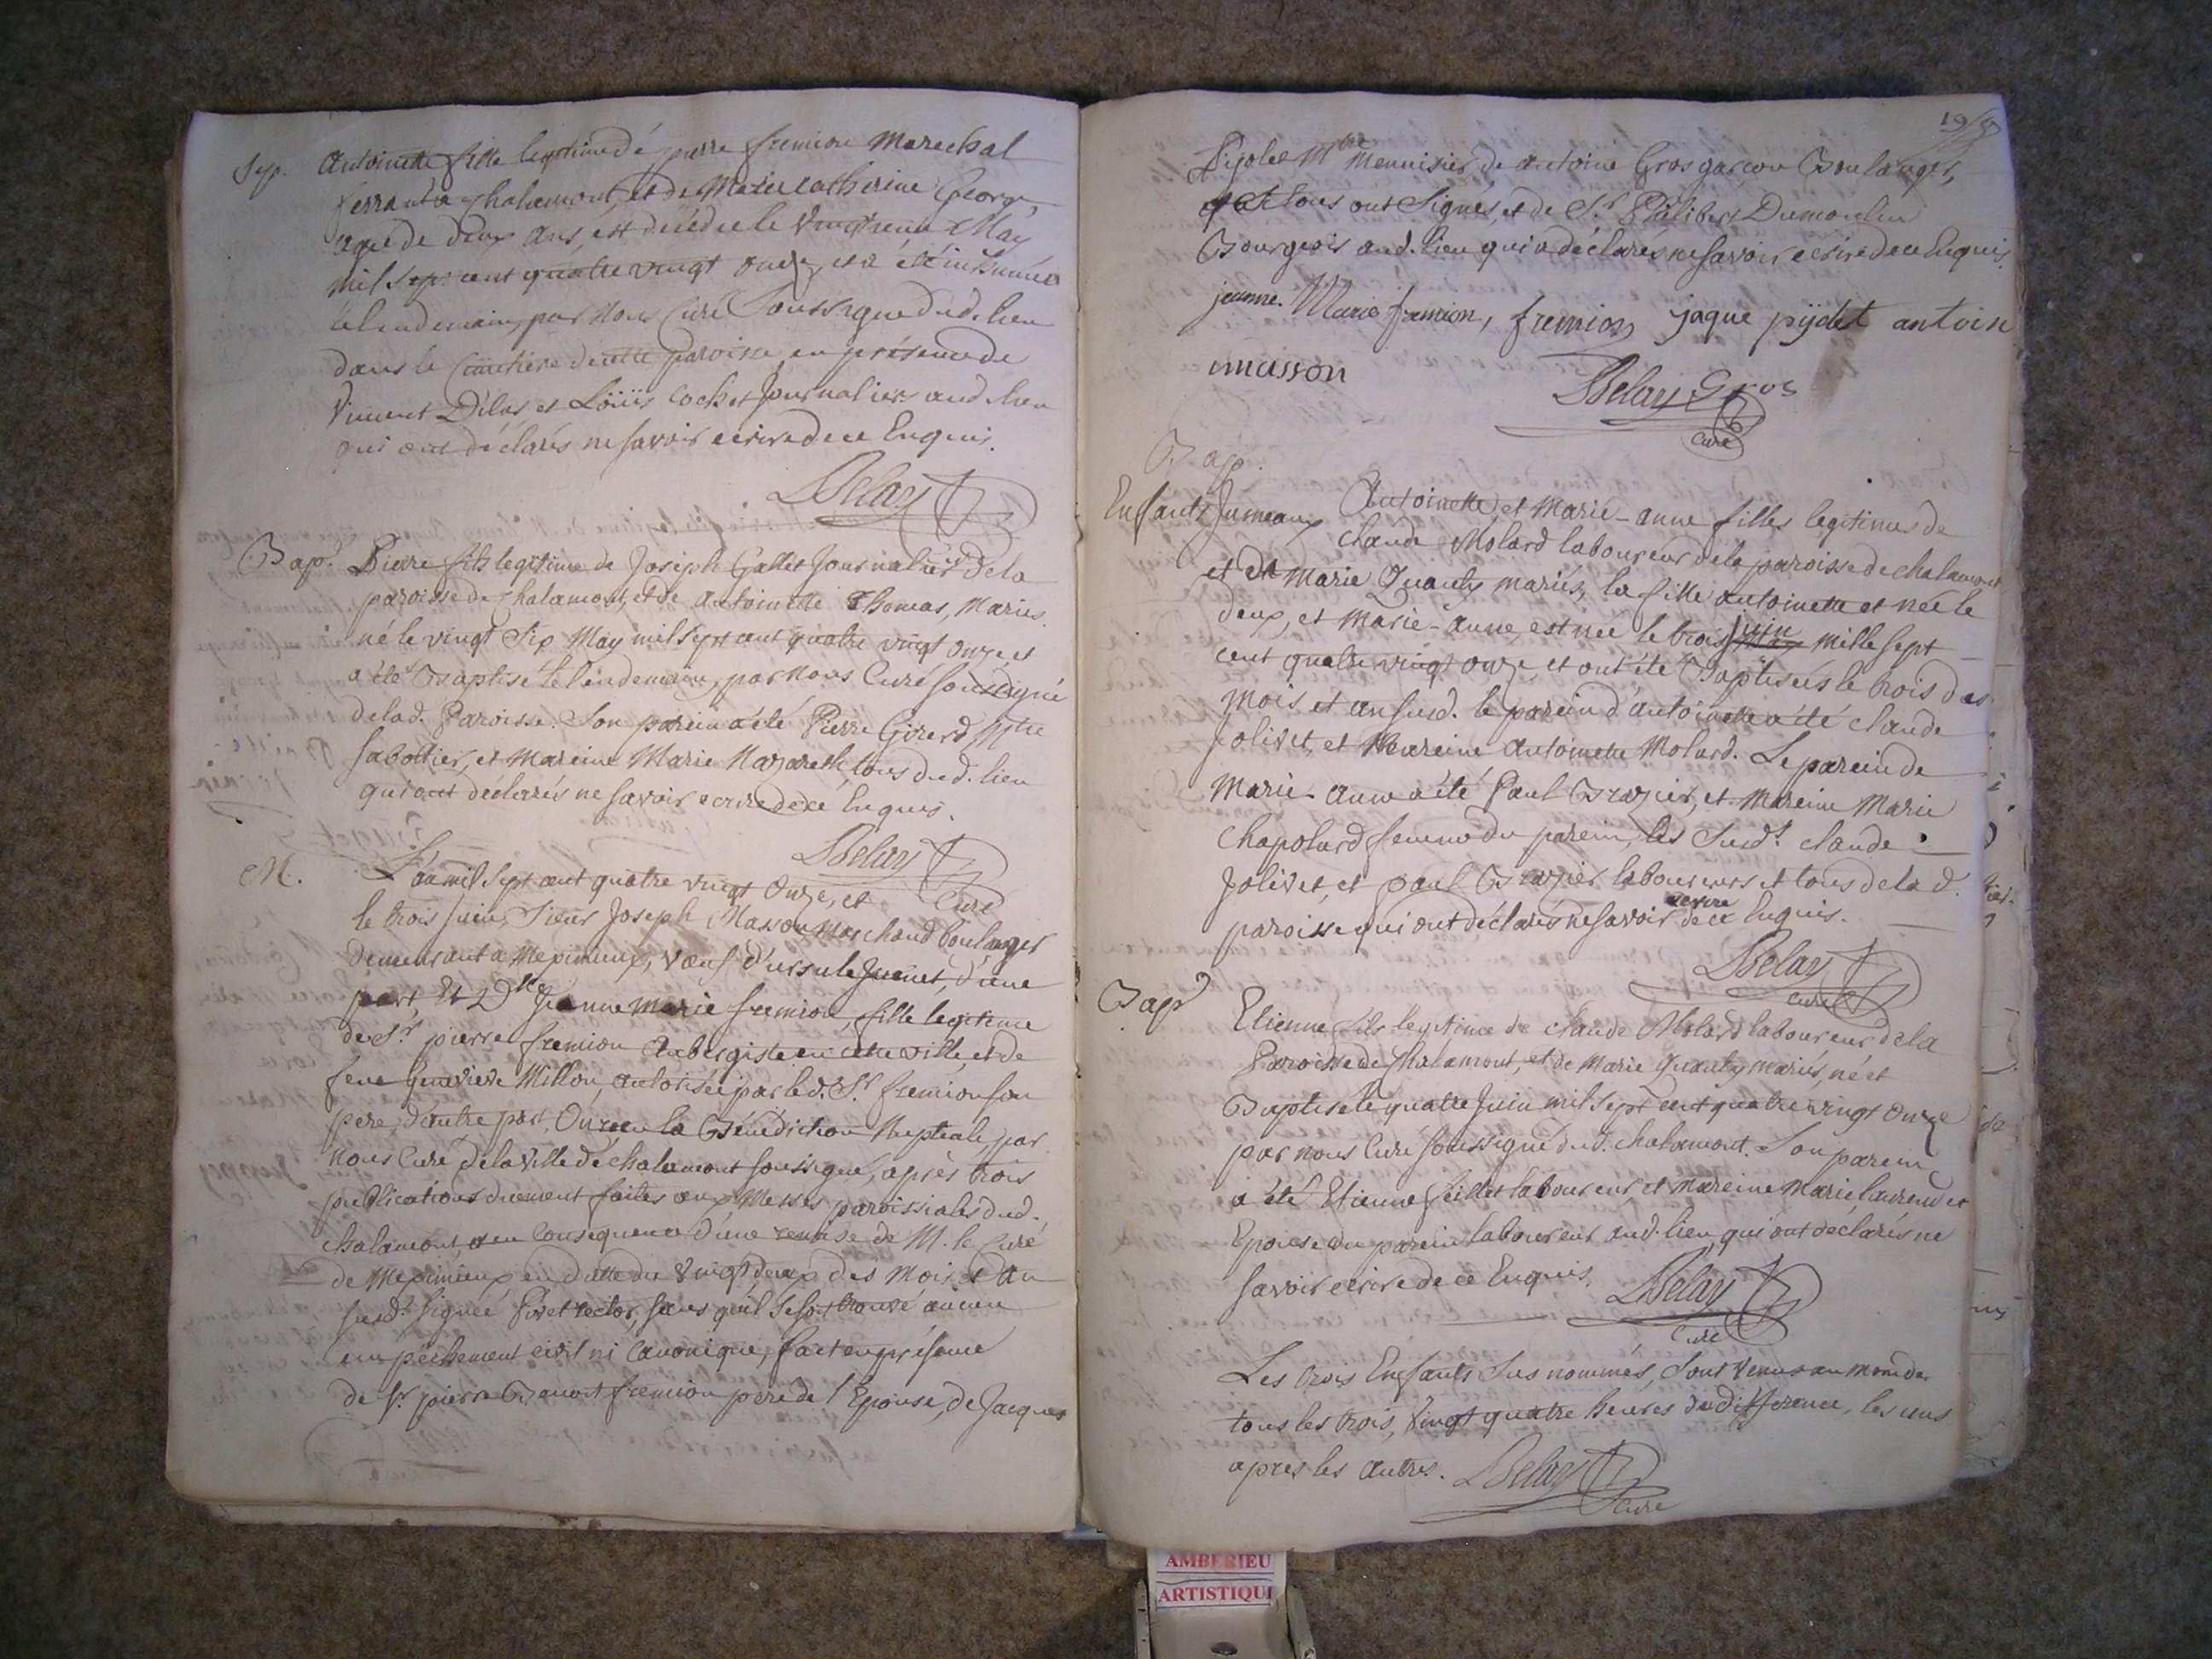 Sep. Antoinette fille legitime dé pierre fremion Marechal
ferrant a Chalamont, et de Marie Catherine George,
agée de deux ans, est décédée le vingt May
mil sept cent quatre vingt onze, et a été inhumée
le lendemain, par Nous Curé Soussigné dud. lieu
dans le Cimetiere de cette paroisse, en présence de
Vincent Délas et Loüis Cochet Journaliers aud. lieu
qui ont déclarés ne savoir ecrire de ce Enquis.
Delay
Bap. Pierre fils legitime de Joseph Gallet Journalier de la
paroisse de Chalamont, et de Antoinette Thomas, Mariés.
né le vingt Six May mil Sept cent quatre vingt onze et
a été Baptisé le lendemain, par nous Curé soussigné
de lad. Paroisse. Son parein a été Pierre Girerd Mtre
sabottier, et Mareine Marie Nazareth tous dud. lieu
qui ont déclarés ne savoir ecrire de ce Enquis.
Delay
Curé
M. L'an mil Sept cent quatre vingt Onze, et
le trois Juin, Sieur Joseph Masson Marchand boulanger
demeurant a Mepimieux, veuf d'ursule Juenet, d'une
part, Et Dlle Jeanne Marie fremion, fille legitime
de Sr pierre fremion Aubergiste en cette ville, et de
feue Genevieve Millon, autorisée par led. Sr. fremion son
pere, d'autre part, Ont reçu la Bénédiction Nuptiale, par
nous Curé de la ville de Chalamont soussigné, après trois
publications duement faites aux Messes paroissiales dud.
Chalamont, et en consequence d'une remise de M. le Curé
de Mepimieux en datte du vingt deux des Mois et an
susd. signée rector, sans qu'il se soit trouvé aucun
empêchement civil ni Canonique, fait en présence
de Sr. pierre Benoit fremion pere de l'Epouse, de Jacques
19
Pijolet Mtre Menuisier, de antoine Gros garçon Boulanger,
tous ont Signés, et de Sr Philibert Dumoulin
Bourgeois aud. lieu qui a déclarés ne savoir ecrire de ce Enquis.
jeanne. Marie fremion, fremion jaque pijolet antoin
masson
Delay Gros
Curé
Bap.
Enfants Jumeaux Antoinette et Marie-anne filles legitimes de
Claude Molard laboureur de la paroisse de chalamont
et de Marie Quanty mariés, la fille antoinette et née le
deux, et Marie-anne, est née le trois juin mille sept
cent quatre vingt onze, et ont été Baptisées le trois des
Mois et an susd. le parein d'antoinette a été claude
Jolivet, et Mareine Antoinette Molard. Le parein de
Marie-anne a été Paul Brazier, et Mareine Marie
Chapolard femme du parein, les Susd. claude
Jolivet, et paul Brazier laboureurs et tous de la d.
paroisse qui ont déclarés ne savoir ecrire de ce Enquis.
Delay
Curé
Bap. Etienne fils legitime de Claude Molard laboureur de la
Paroisse de Chalamont, et de Marie Quanty mariés, né et
Baptisé le quatre Juin mil Sept cent quatre vingt Onze
par nous Curé soussigné dud. chalamont. Son parein
a été Etienne feillet laboureur, et Mareine Marie laurend et
Epouse du parein laboureur aud. lieu, qui ont déclarés ne
savoir ecrire de ce Enquis. Delay
Curé
Les trois Enfants Sus nommés, Sont venus au monde
tous les trois, vingt quatre heures de différence, les uns
après les autres. Delay
Curé
AMBERIEU
ARTISTIQU